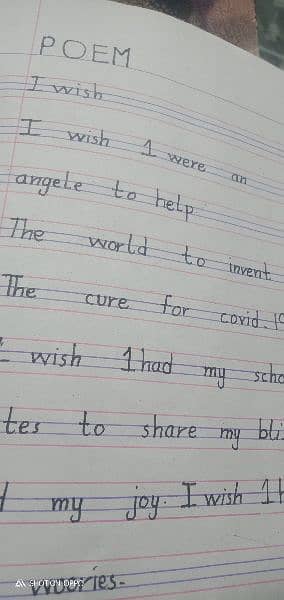 POEM
I wish
I wish 1 were an
angele to help
The world to invent
The cure for covid.19
I wish 1 had my scho
tes to share my bli
my joy. I wish 1h
woories.
SHOT ON OPPO